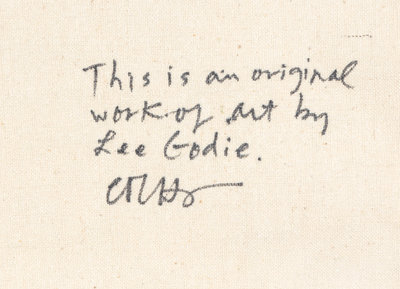 This is an original
work of art by
Lee Godie.